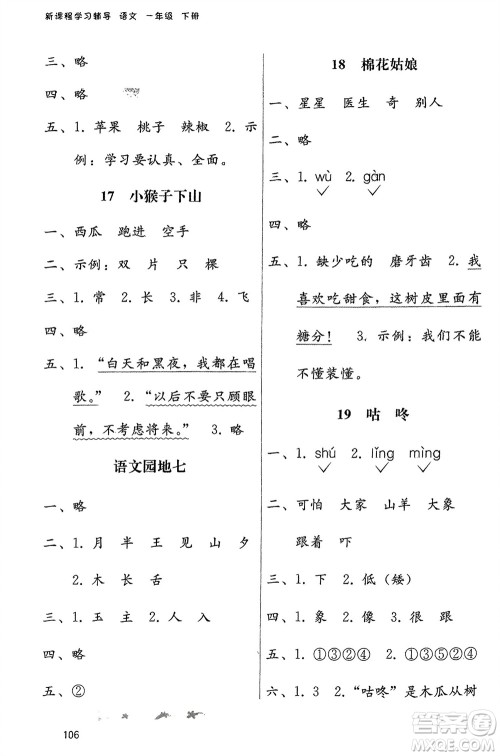 新课程学习辅导 语文 一年级 下册
三、略
四、略
五、1. 苹果 桃子 辣椒 2. 示
例：学习要认真、全面。
17 小猴子下山
一、西瓜 跑进 空手
二、示例：双 片 只 棵
三、1. 常 2. 长 3. 非 4. 飞
四、略
五、1. “白天和黑夜，我都在唱
歌。” 2. “以后不要只顾眼
前，不考虑将来。” 3. 略
语文园地七
一、略
二、1. 月 半 王 见 山 夕
2. 木 长 舌
三、1. 人 2. 入
四、略
五、②
106
18 棉花姑娘
一、星星 医生 奇 别人
二、略
三、1. wù 2. gàn
四、略
五、1. 缺少吃的 磨牙齿 2. 我
喜欢吃甜食，这树皮里面有
糖分！ 3. 示例：我们不能
不懂装懂。
19 咕咚
一、1. shú 2. lǐng mìng
二、可怕 大家 山羊 大象
跟着 吓
三、1. 下 2. 低（矮）
四、1. 象 2. 像 3. 很 跟
五、1. ①③④ 2. ①③④⑤
六、1. 3 2. “咕咚”是木瓜从树